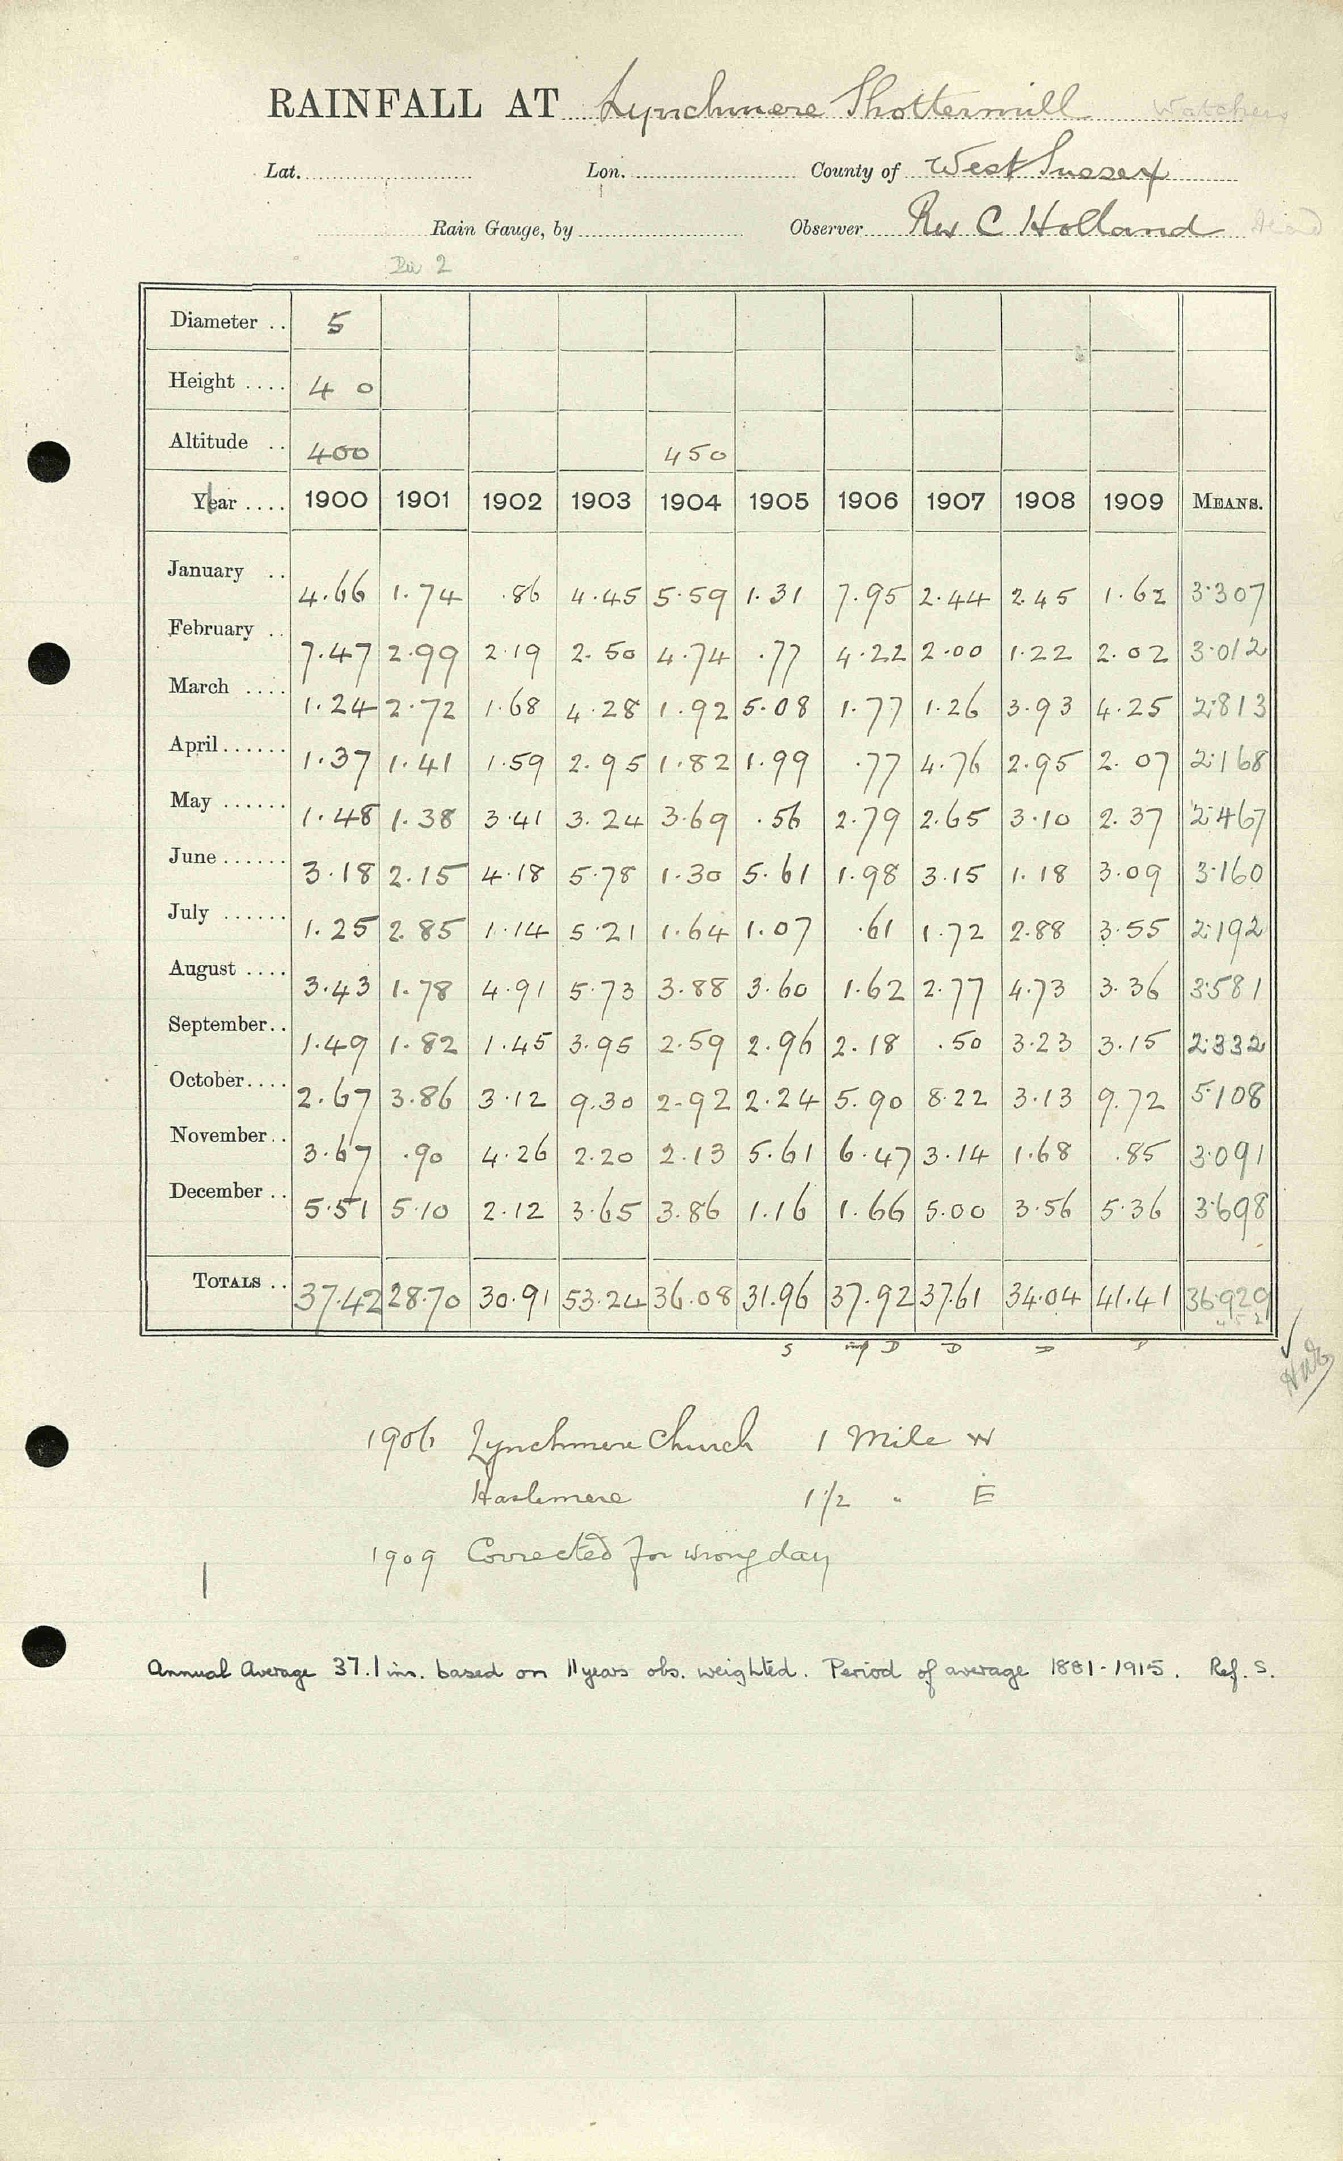 RAINFALL AT Lynchmere Shottermill Watchers
Lat. Lon. County of West Sussex
Rain Gauge, by Observer Rev C Holland
Div 2
Diameter .. 5
Height .... 4 0
Altitude .. 400 450
Year .... 1900 1901 1902 1903 1904 1905 1906 1907 1908 1909 MEANS.
January .. 4.66 1.74 .86 4.45 5.59 1.31 7.95 2.44 2.45 1.62 3.307
February .. 7.47 2.99 2.19 2.50 4.74 .77 4.22 2.00 1.22 2.02 3.012
March .... 1.24 2.72 1.68 4.28 1.92 5.08 1.77 1.26 3.93 4.25 2.813
April ...... 1.37 1.41 1.59 2.95 1.82 1.99 .77 4.76 2.95 2.07 2.168
May ...... 1.48 1.38 3.41 3.24 3.69 .56 2.79 2.65 3.10 2.37 2.467
June ...... 3.18 2.15 4.18 5.78 1.30 5.61 1.98 3.15 1.18 3.09 3.160
July ...... 1.25 2.85 1.14 5.21 1.64 1.07 .61 1.72 2.88 3.55 2.192
August .... 3.43 1.78 4.91 5.73 3.88 3.60 1.62 2.77 4.73 3.36 3.581
September .. 1.49 1.82 1.45 3.95 2.59 2.96 2.18 .50 3.23 3.15 2.332
October .... 2.67 3.86 3.12 9.30 2.92 2.24 5.90 8.22 3.13 9.72 5.108
November .. 3.67 .90 4.26 2.20 2.13 5.61 6.47 3.14 1.68 .85 3.091
December .. 5.51 5.10 2.12 3.65 3.86 1.16 1.66 5.00 3.56 5.36 3.698
TOTALS .. 37.42 28.70 30.91 53.24 36.08 31.96 37.92 37.61 34.04 41.41 36.929
S D D D
1906 Lynchmere Church 1 Mile W
Haslemere 1 1/2 " E
1909 Corrected for wrong day
Annual Average 37.1 ins. based on 11 years obs. weighted. Period of average 1881-1915. Ref. S.